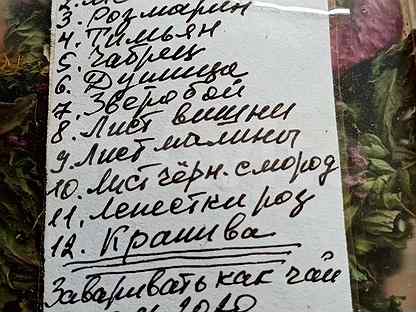 3. Розмарин
4. Тимьян
5. Чабрец
6. Душица
7. Зверобой
8. Лист вишни
9. Лист малины
10. Лист чёрн. смород
11. Лепестки роз
12. Крапива
Заваривать как чай